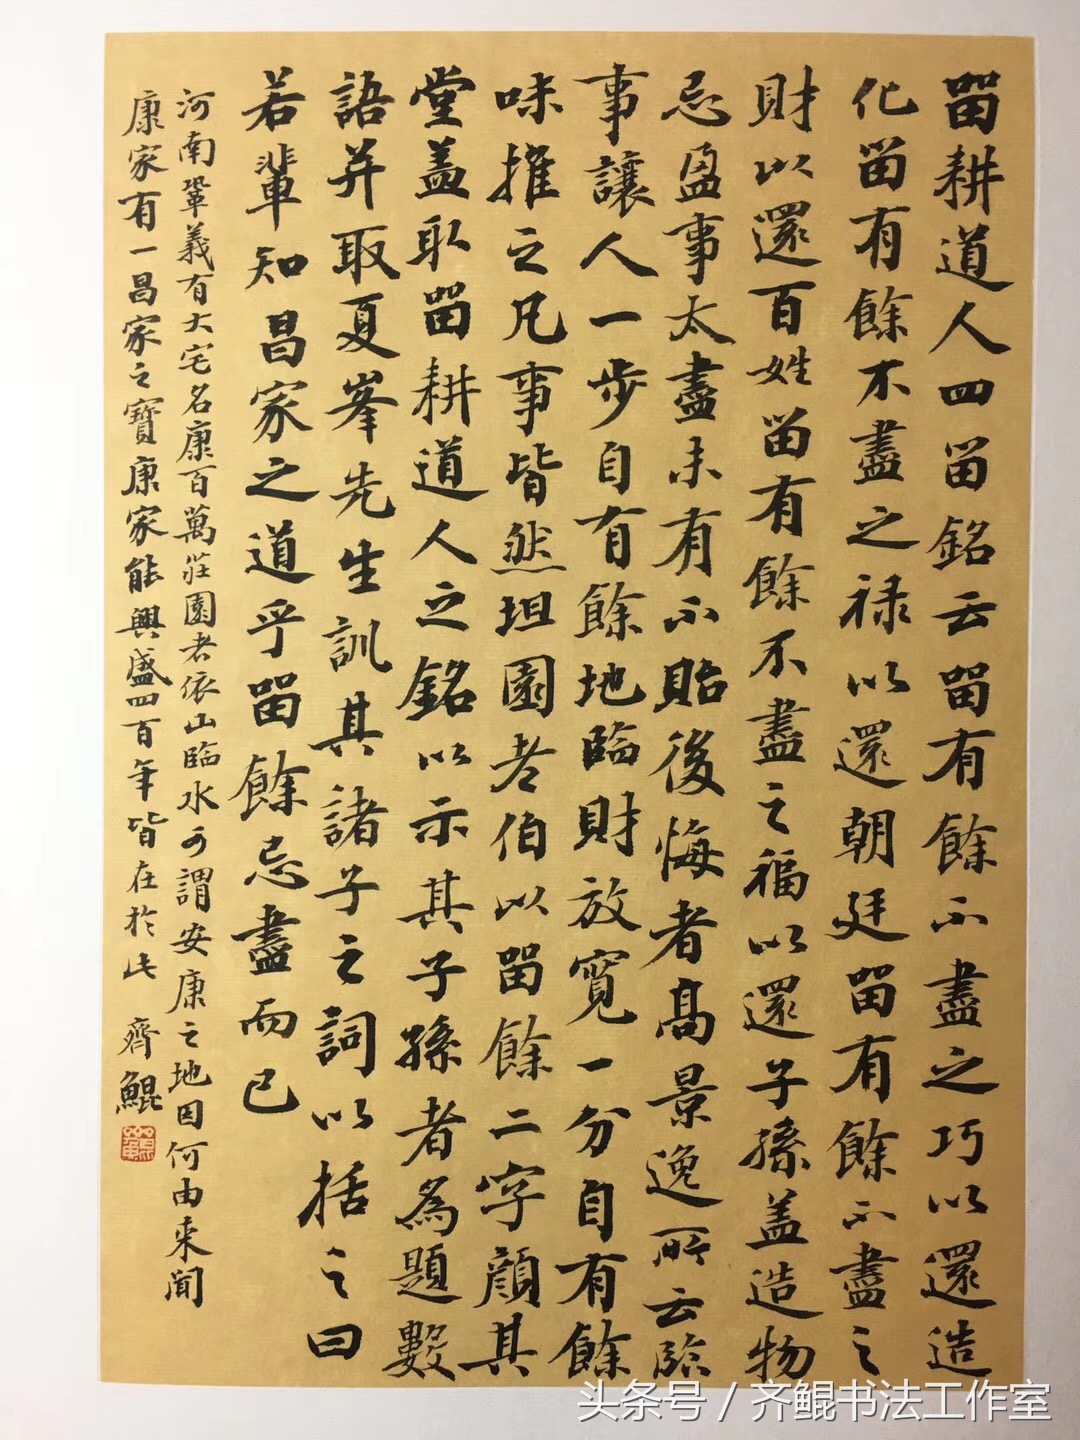 留耕道人四留銘云留有餘不盡之巧以還造
化留有餘不盡之禄以還朝廷留有餘不盡之
財以還百姓留有餘不盡之福以還子孫盖造物
忌盈事太盡未有不貽後悔者高景逸所云臨
事讓人一步自有餘地臨財放寬一分自有餘
味推之凡事皆然坦園老伯以留餘二字顔其
堂盖取留耕道人之銘以示其子孫者為題數
語并取夏峯先生訓其諸子之詞以括之曰
若輩知昌家之道乎留餘忌盡而已
河南鞏義有大宅名康百萬莊園者依山臨水可謂安康之地因何由来聞
康家有一昌家之寶康家能興盛四百年皆在於此 齊鯤
头条号 / 齐鲲书法工作室